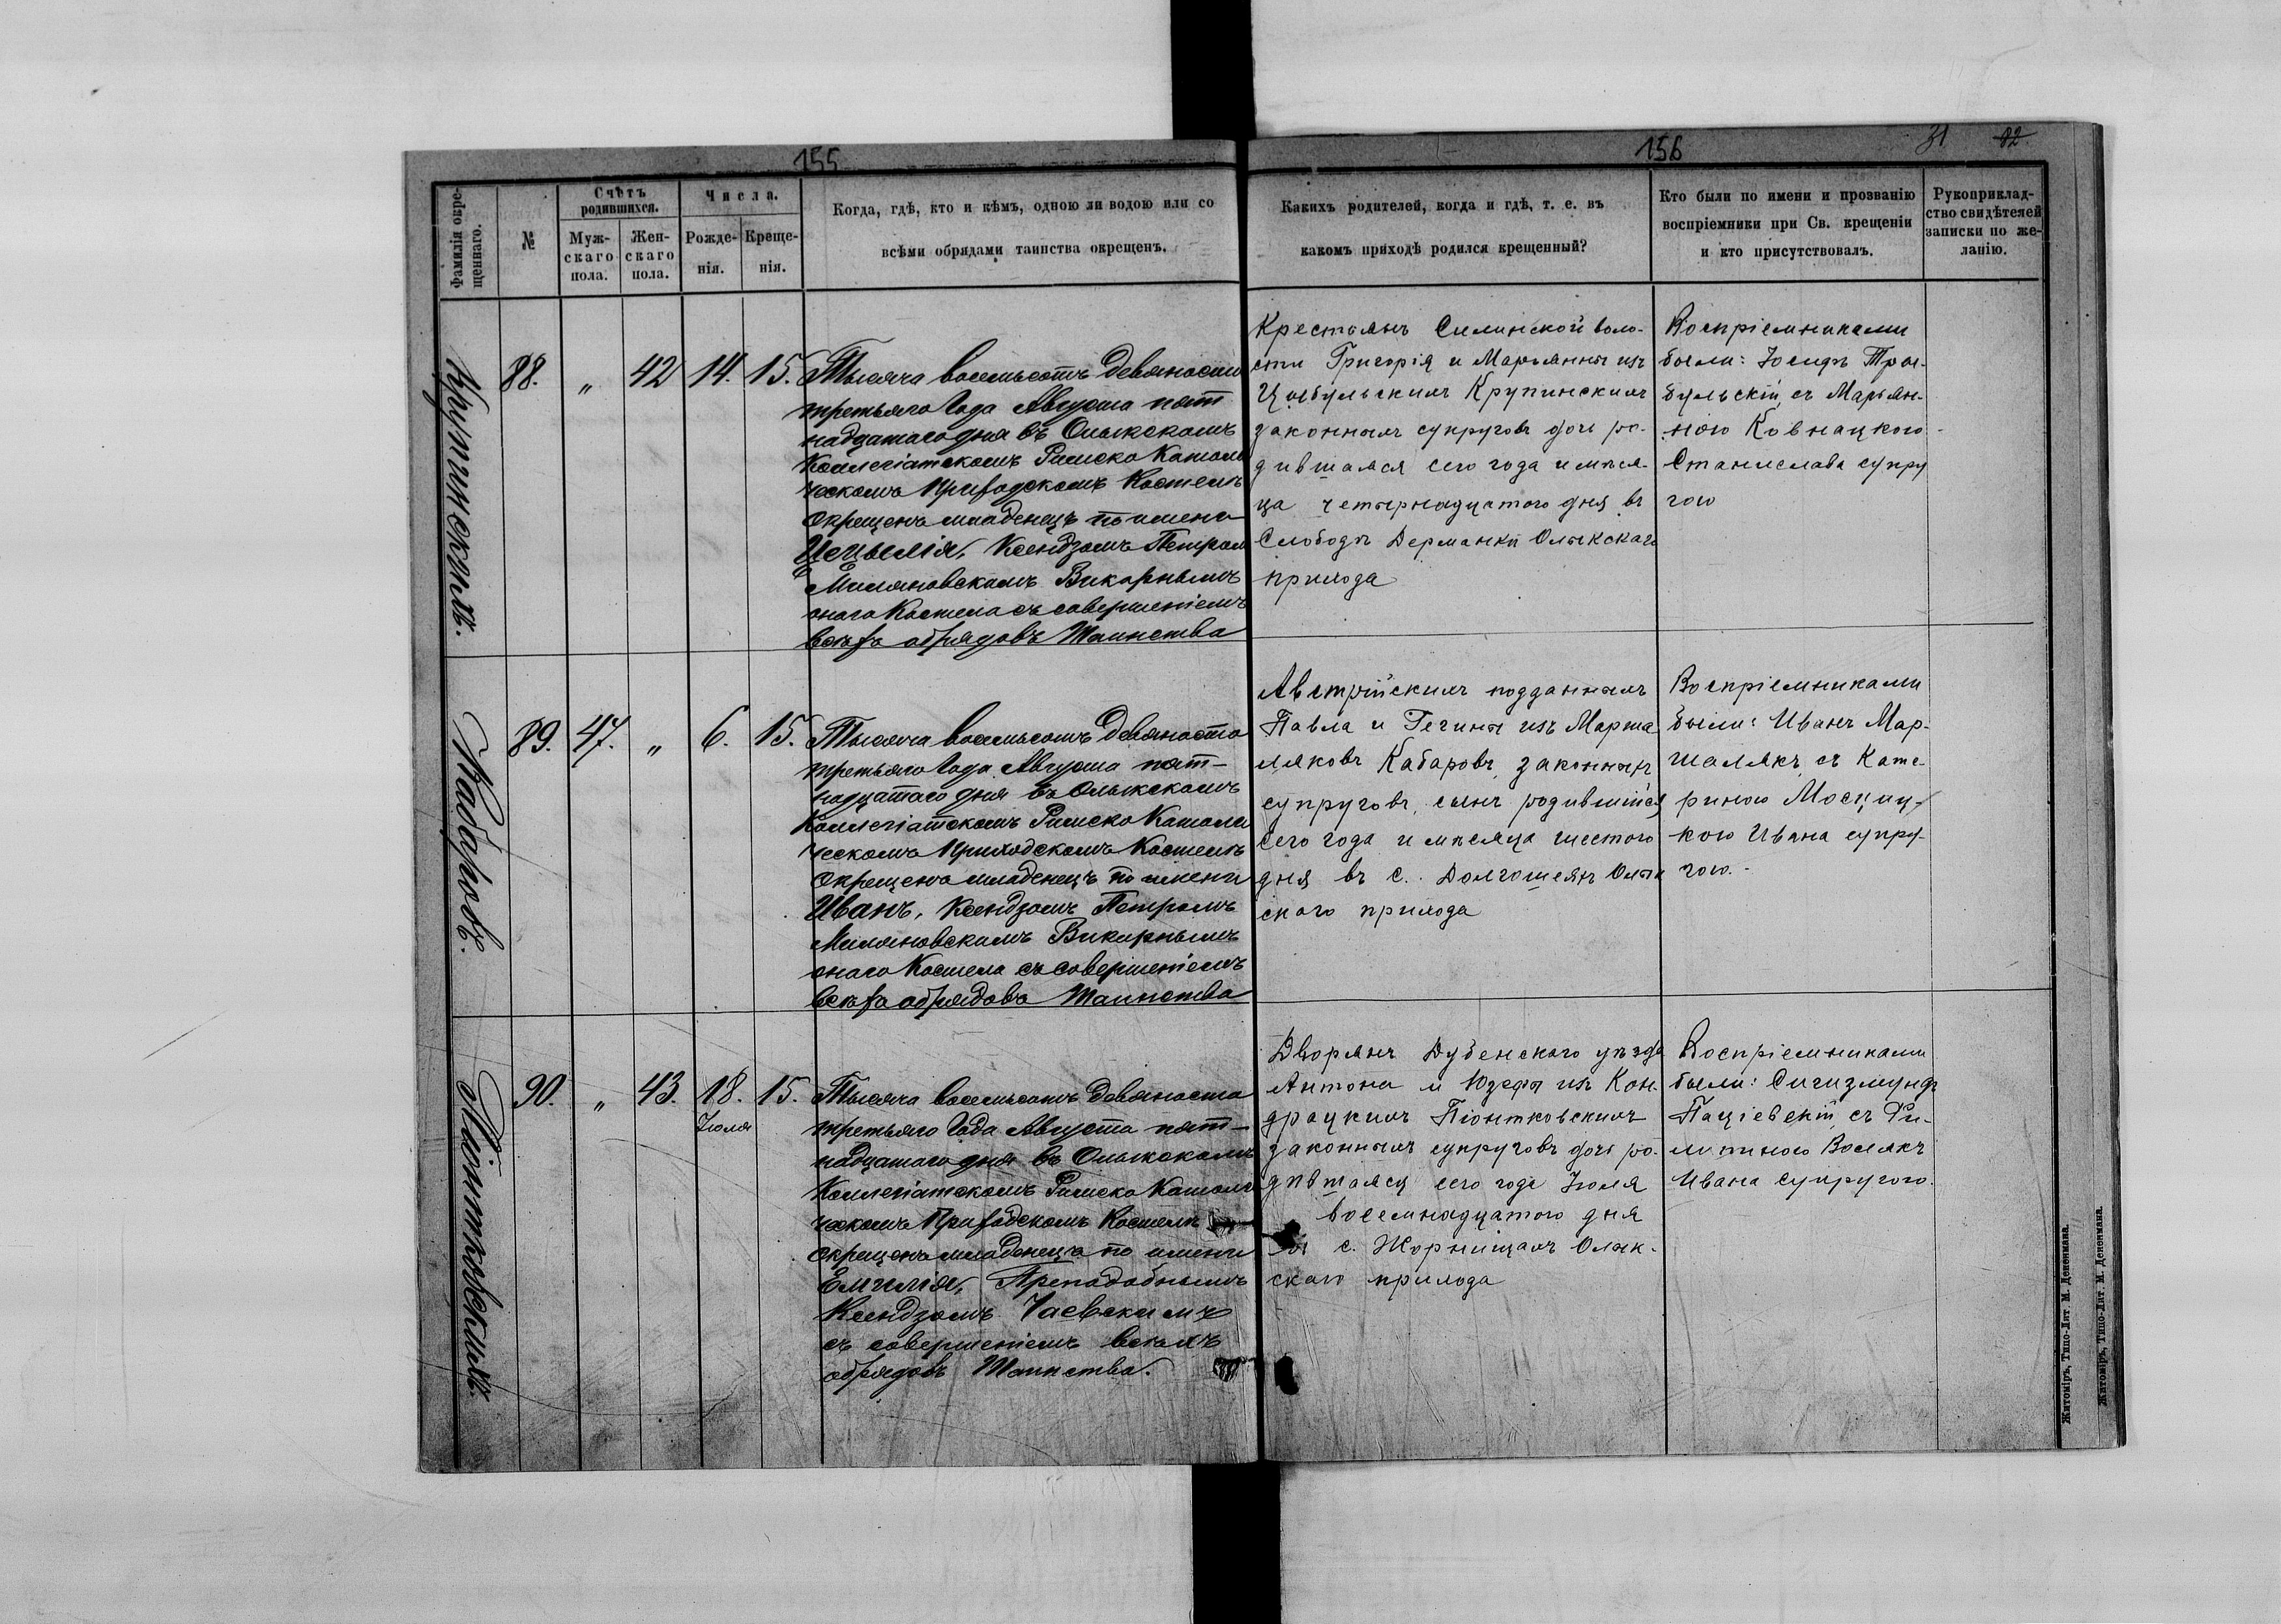 155
Фамилія окре-
щеннаго.
№
Счетъ
родившихся.
Муж-
скаго
пола.
Жен-
скаго
пола.
Числа.
Рожде-
нія.
Креще-
нія.
Когда, гдѣ, кто и кѣмъ, одною ли водою или со
всѣми обрядами таинства окрещенъ.
156
31 82
Какихъ родителей, когда и гдѣ, т. е. въ
какомъ приходѣ родился крещенный?
Кто были по имени и прозванію
воспріемники при Св. крещеніи
и кто присутствовалъ.
Рукоприклад-
ство свидѣтелей
записки по же-
ланію.
Крупинскихъ.
88. „ 42 14. 15.
Тысяча восемьсотъ девяносто
третьяго Года Августа пят
надцатаго дня въ Олыкскомъ
Коллегіатскомъ Римско Католи
ческомъ Приходскомъ Костелѣ
окрещенъ младенецъ по имени
Цецылія, Ксендзомъ Петром
Миляновскимъ Викарнымъ
онаго Костела съ совершеніемъ
всѣхъ обрядовъ Таинства
Крестьянъ Силинской воло-
сти Григорія и Марьянны изъ
Цыбульскихъ Крупинскихъ
законныхъ супруговъ дочь ро-
дившаяся сего года и мѣся-
ца четырнадцатого дня въ
Слободѣ Дерманки Олыкскаго
прихода
Воспріемниками
были: Іосифъ
съ Марьян-
ною Ковнацкого
Станислава супру
гою
Кабаровъ.
89. 47. „ 6. 15.
Тысяча восемьсотъ девяносто
третьяго Года Августа пят-
надцатаго дня въ Олыкскомъ
Коллегіатскомъ Римско Католи
ческомъ Приходскомъ Костелѣ
окрещенъ младенецъ по имени
Иванъ, Ксендзомъ Петромъ
Миляновскимъ Викарнымъ
онаго Костела съ совершеніемъ
всѣхъ обрядовъ Таинства
Австрійскихъ подданныхъ
Павла и Регины изъ Марша
ляковъ Кабаровъ, законныхъ
супруговъ, сынъ родившійся
сего года и мѣсяца шестого
дня въ с. Долгошеяхъ Олык
ского прихода
Воспріемниками
были: Иванъ Мар-
шалякъ, съ Кате-
риною Мосциц-
кого Ивана супру-
гою.-
Піонтковскихъ.
90. „ 43. 18. 15.
Іюля
Тысяча восемьсотъ девяноста
третьяго Года Августа пят-
надцатаго дня въ Олыкскомъ
Коллегіатскомъ Римско Католи
ческомъ Приходскомъ Костелѣ
окрещенъ младенецъ по имени
Емилія, Преподобнымъ
Ксендзомъ Гаевскимъ
съ совершеніемъ всѣхъ
обрядовъ Таинства.
Дворянъ Дубенского уѣзда
Антона и Юзефы изъ Кон-
драцкихъ Піонтковскихъ
законныхъ супруговъ дочь ро-
дившаяся сего года Іюля
восемнадцатого дня
въ с. Жорнищахъ Олык-
ского прихода
Воспріемниками
были: Сигизмундъ
Паціевскій, съ Фи-
липиною Волякъ
Ивана супругою.
Житоміръ, Типо-Лит. М. Дененмана.
Житоміръ, Типо-Лит. М. Дененмана.